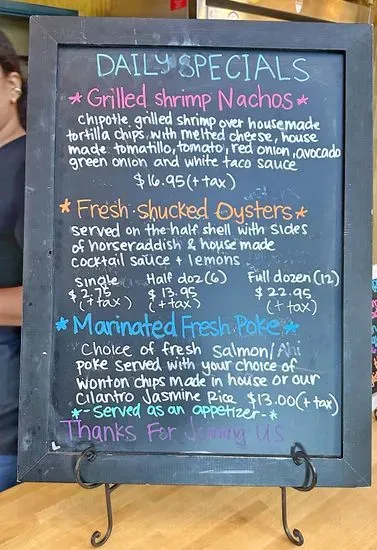 DAILY SPECIALS
* Grilled shrimp Nachos *
chipotle grilled shrimp over housemade
tortilla chips with melted cheese, house
made tomatillo, tomato, red onion, avocado
green onion and white taco sauce
$16.95 (+ tax)
* Fresh shucked Oysters *
served on the half shell with sides
of horseraddish & house made
cocktail sauce + lemons
single Half doz (6) Full dozen (12)
$2.75 $13.95 $22.95
(+ tax) (+ tax) (+ tax)
* Marinated Fresh Poke *
Choice of fresh salmon/Ahi
poke served with your choice of
wonton chips made in house or our
Cilantro Jasmine Rice $13.00 (+ tax)
*- Served as an appetizer -*
Thanks For Joining Us